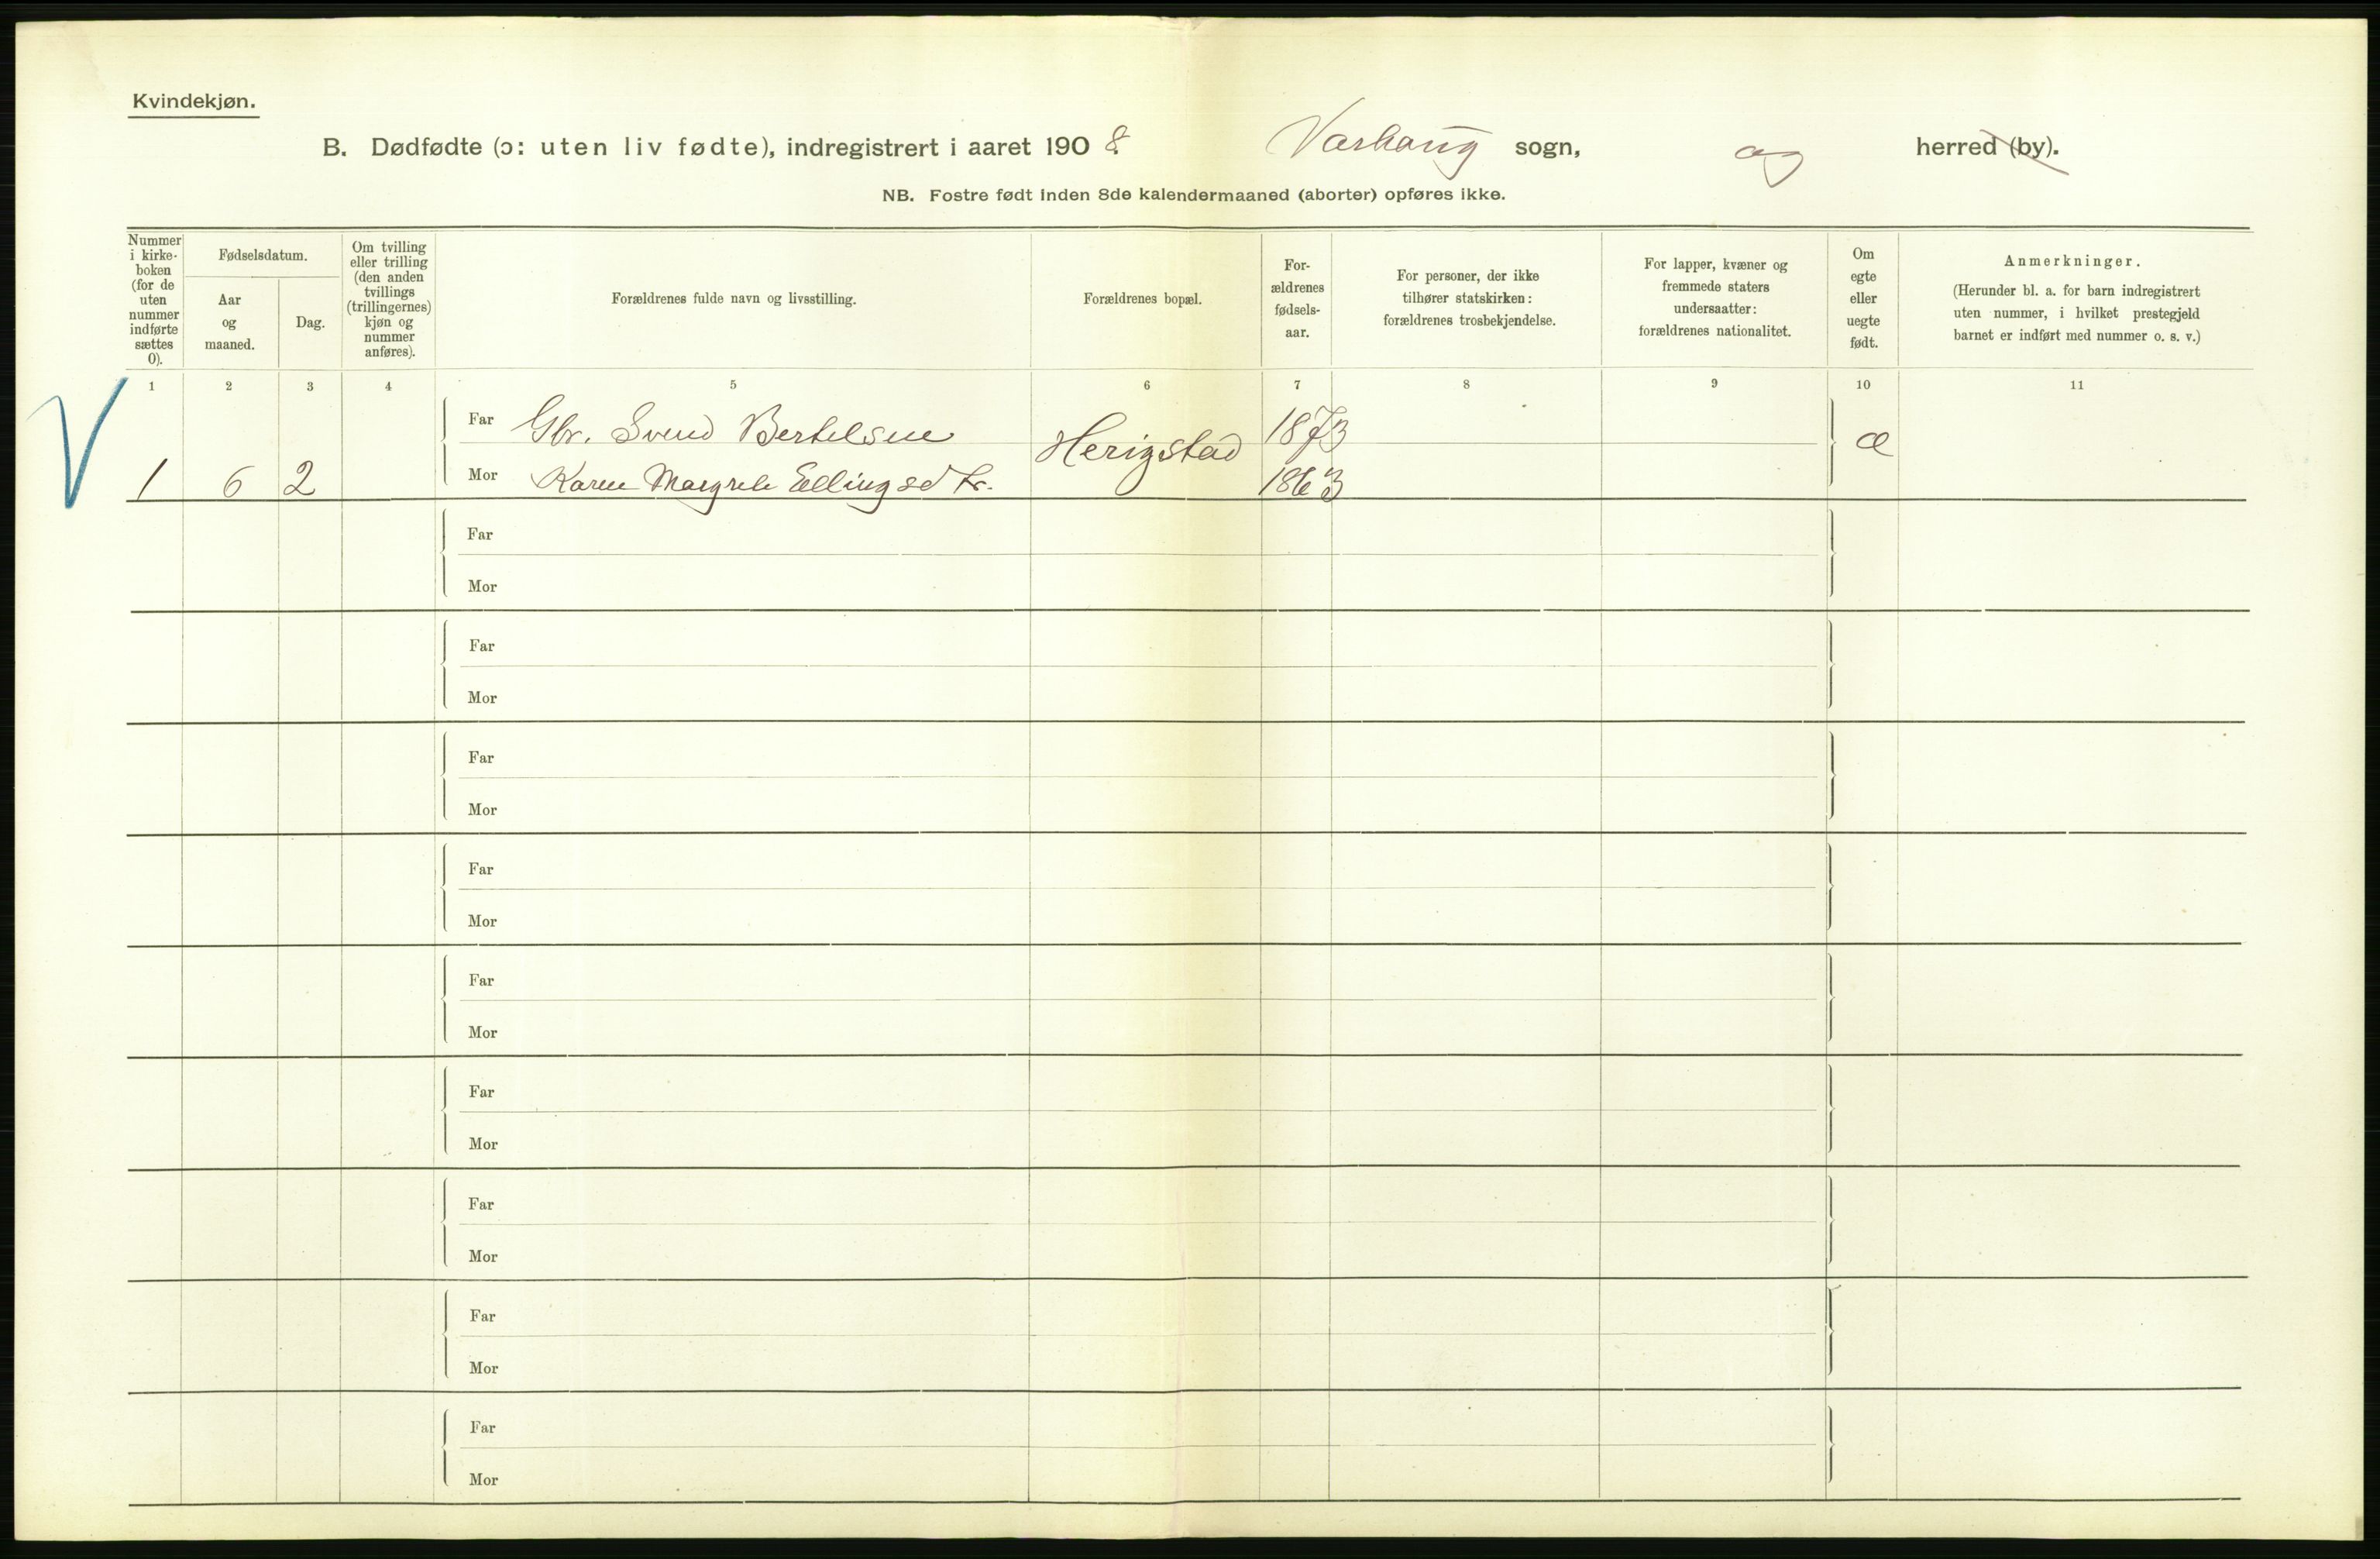 Kvindekjøn.
B. Dødfødte (ɔ: uten liv fødte), indregistrert i aaret 1908. Varhaug sogn, og herred (by).
NB. Fostre født inden 8de kalendermaaned (aborter) opføres ikke.
Nummer i kirke-boken (for de uten nummer indførte sættes 0).
Fødselsdatum.
Aar og maaned.
Dag.
Om tvilling eller trilling (den anden tvillings (trillingernes) kjøn og nummer anføres).
Forældrenes fulde navn og livsstilling.
Forældrenes bopæl.
For-ældrenes fødsels-aar.
For personer, der ikke tilhører statskirken: forældrenes trosbekjendelse.
For lapper, kvæner og fremmede staters undersaatter: forældrenes nationalitet.
Om egte eller uegte født.
Anmerkninger.
(Herunder bl. a. for barn indregistrert uten nummer, i hvilket prestegjeld barnet er indført med nummer o. s. v.)
1 2 3 4 5 6 7 8 9 10 11
Far Gbr. Svend Bertelsen Herigstad 1873 æ
1 6 2 Mor Karen Margrete Ellingsdtr. 1863
Far
Mor
Far
Mor
Far
Mor
Far
Mor
Far
Mor
Far
Mor
Far
Mor
Far
Mor
Far
Mor